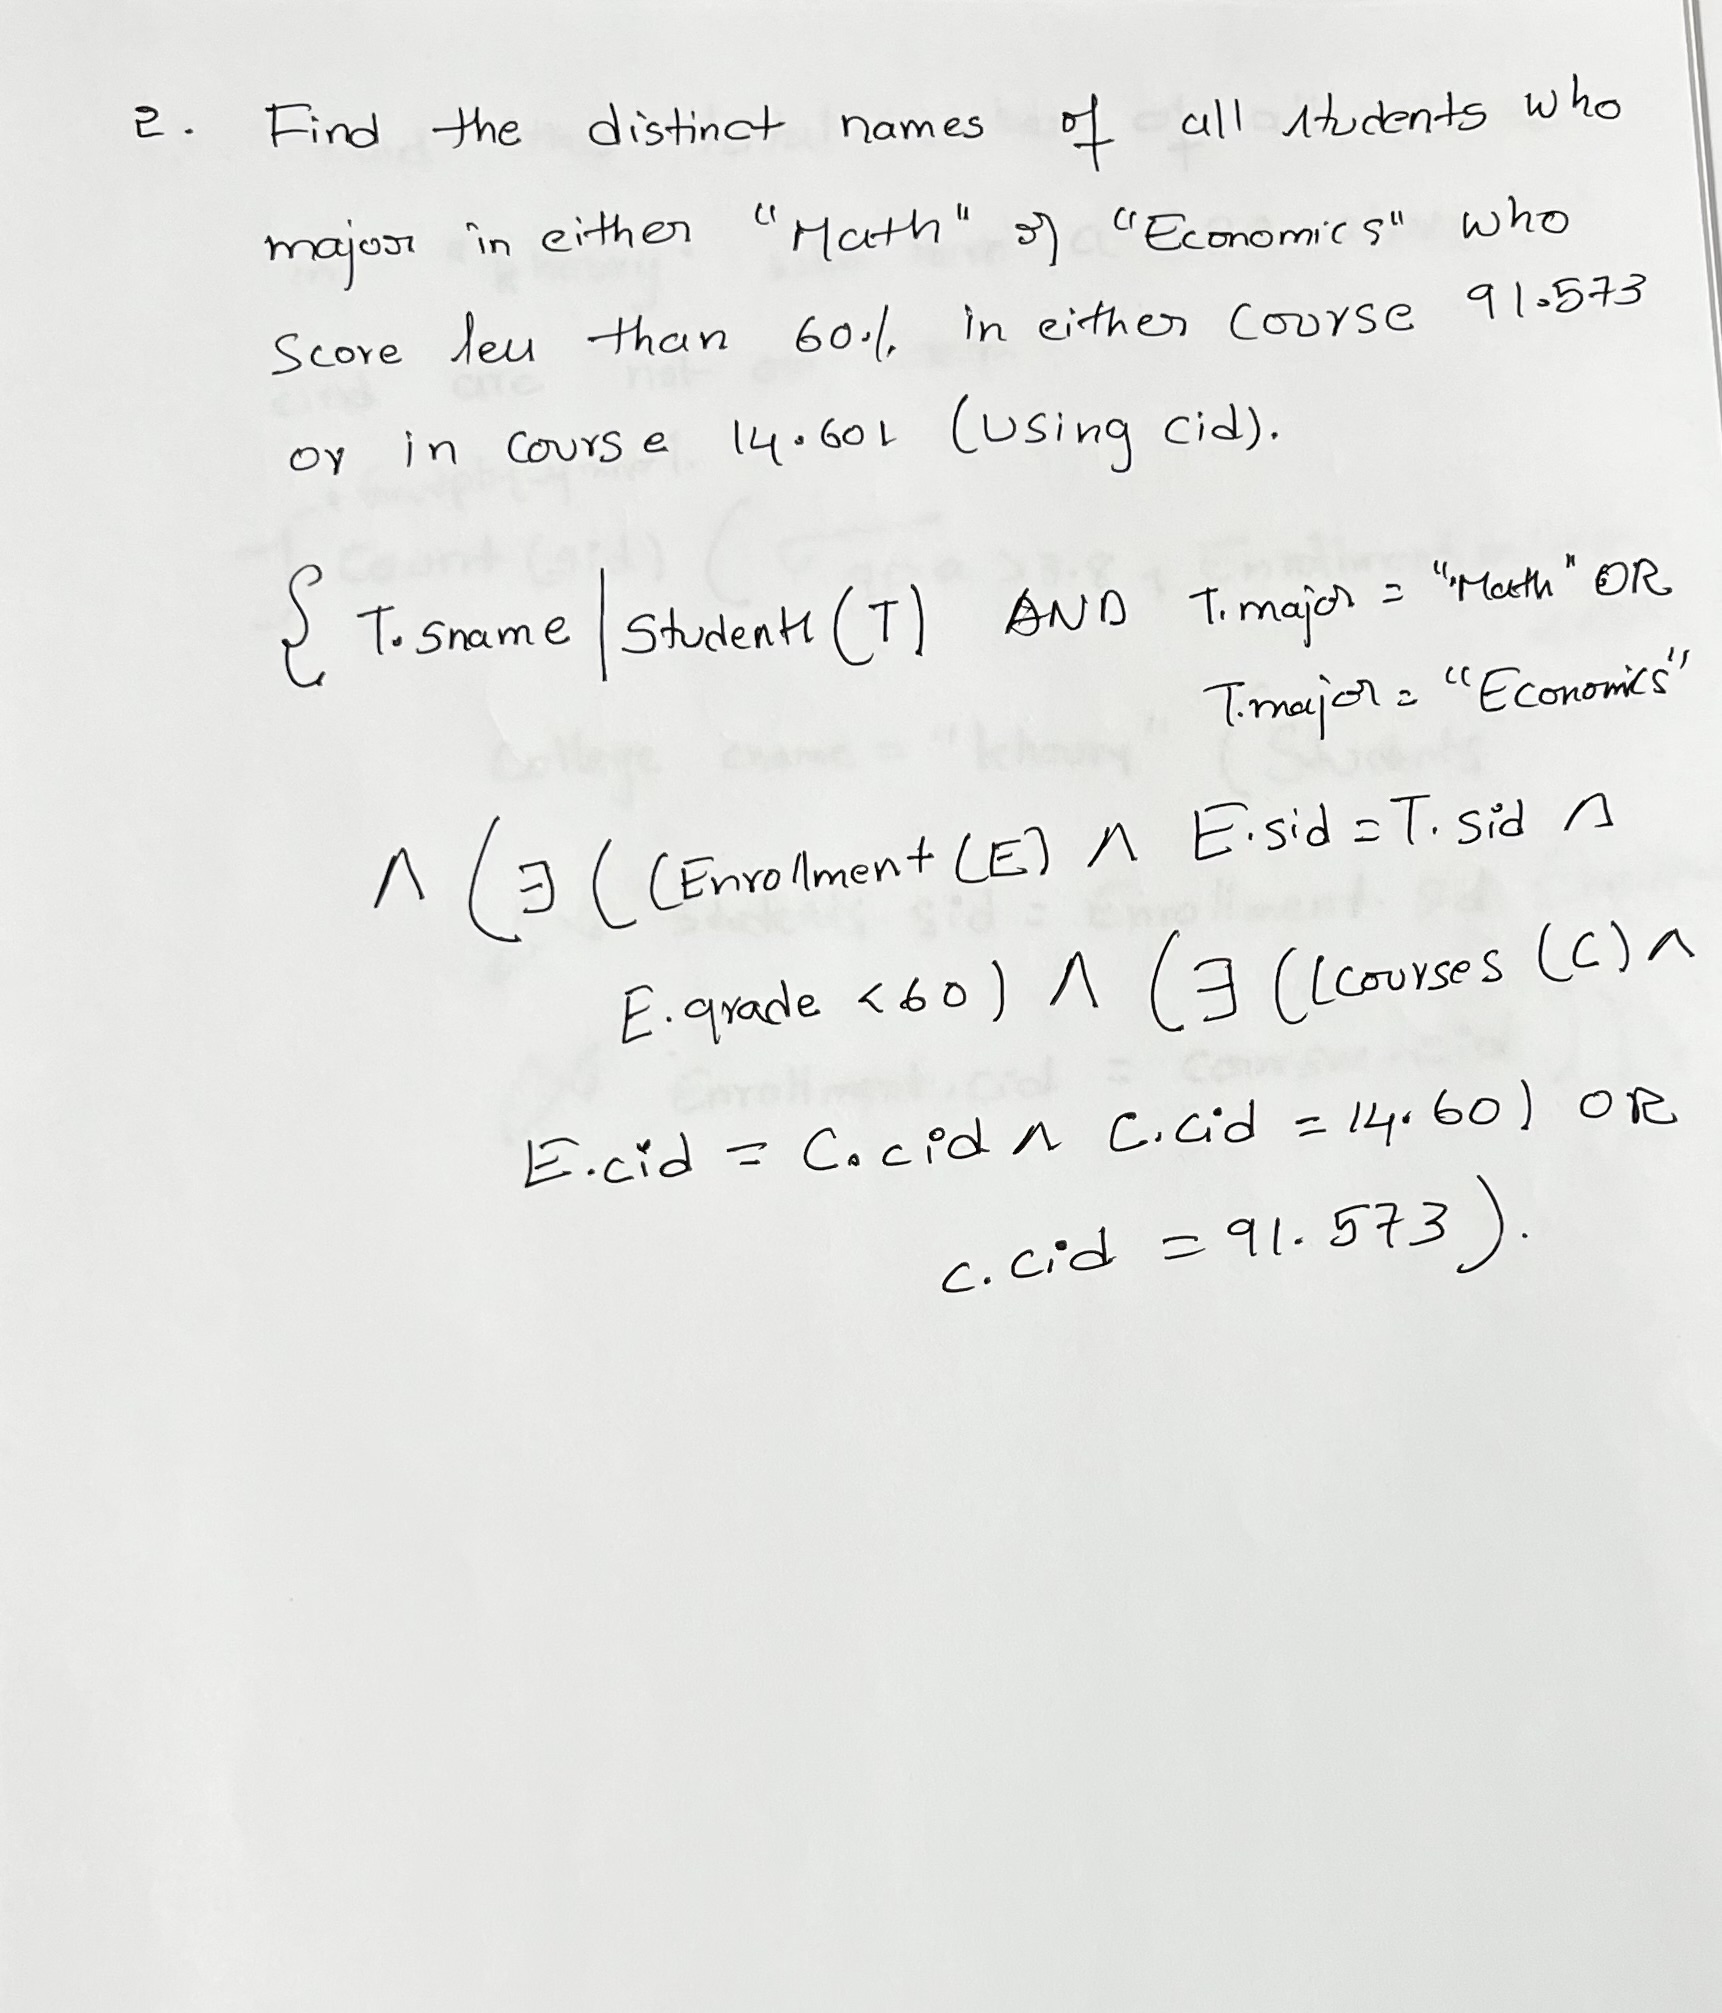 2. Find the distinct names of all students who
major in either "Math" or "Economics" who
Score less than 60% in either course 91.573
or in course 14.601 (using cid).
{ T.sname | Students (T) AND T.major = "Math" OR
T.major = "Economics"
∧ (∃ ((Enrollment (E) ∧ E.sid = T.sid ∧
E.grade < 60) ∧ (∃ ((Courses (C) ∧
E.cid = C.cid ∧ C.cid = 14.601 OR
C.cid = 91.573).